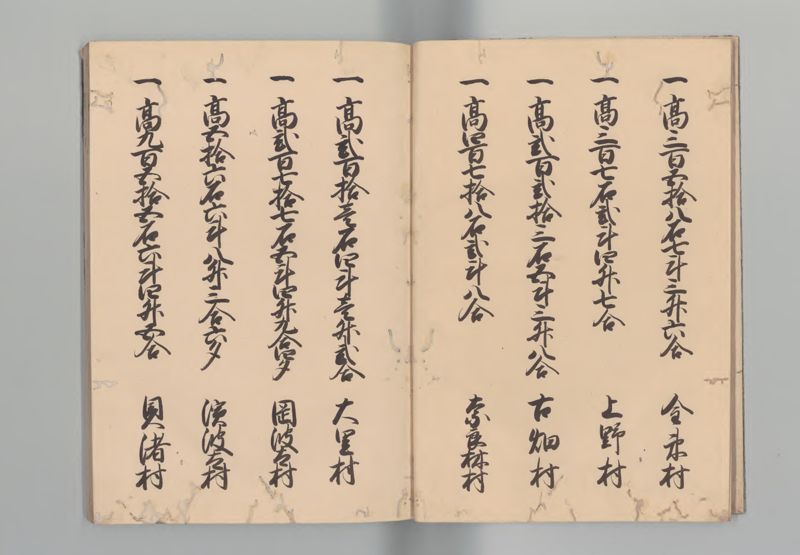 一 高三百五拾八石七斗三升六合 金末村
一 高三百七石弐斗四升七合 上野村
一 高弐百弐拾三石五斗三升八合 古畑村
一 高四百七拾八石弐斗八合 奈良林村
一 高弐百拾壱石四斗壱升弐合 大里村
一 高弐百七拾七石五斗四升九合四夕 岡波太村
一 高五拾六石六斗八升三合六夕 濱波太村
一 高九百五拾五石六斗四升五合 貝渚村